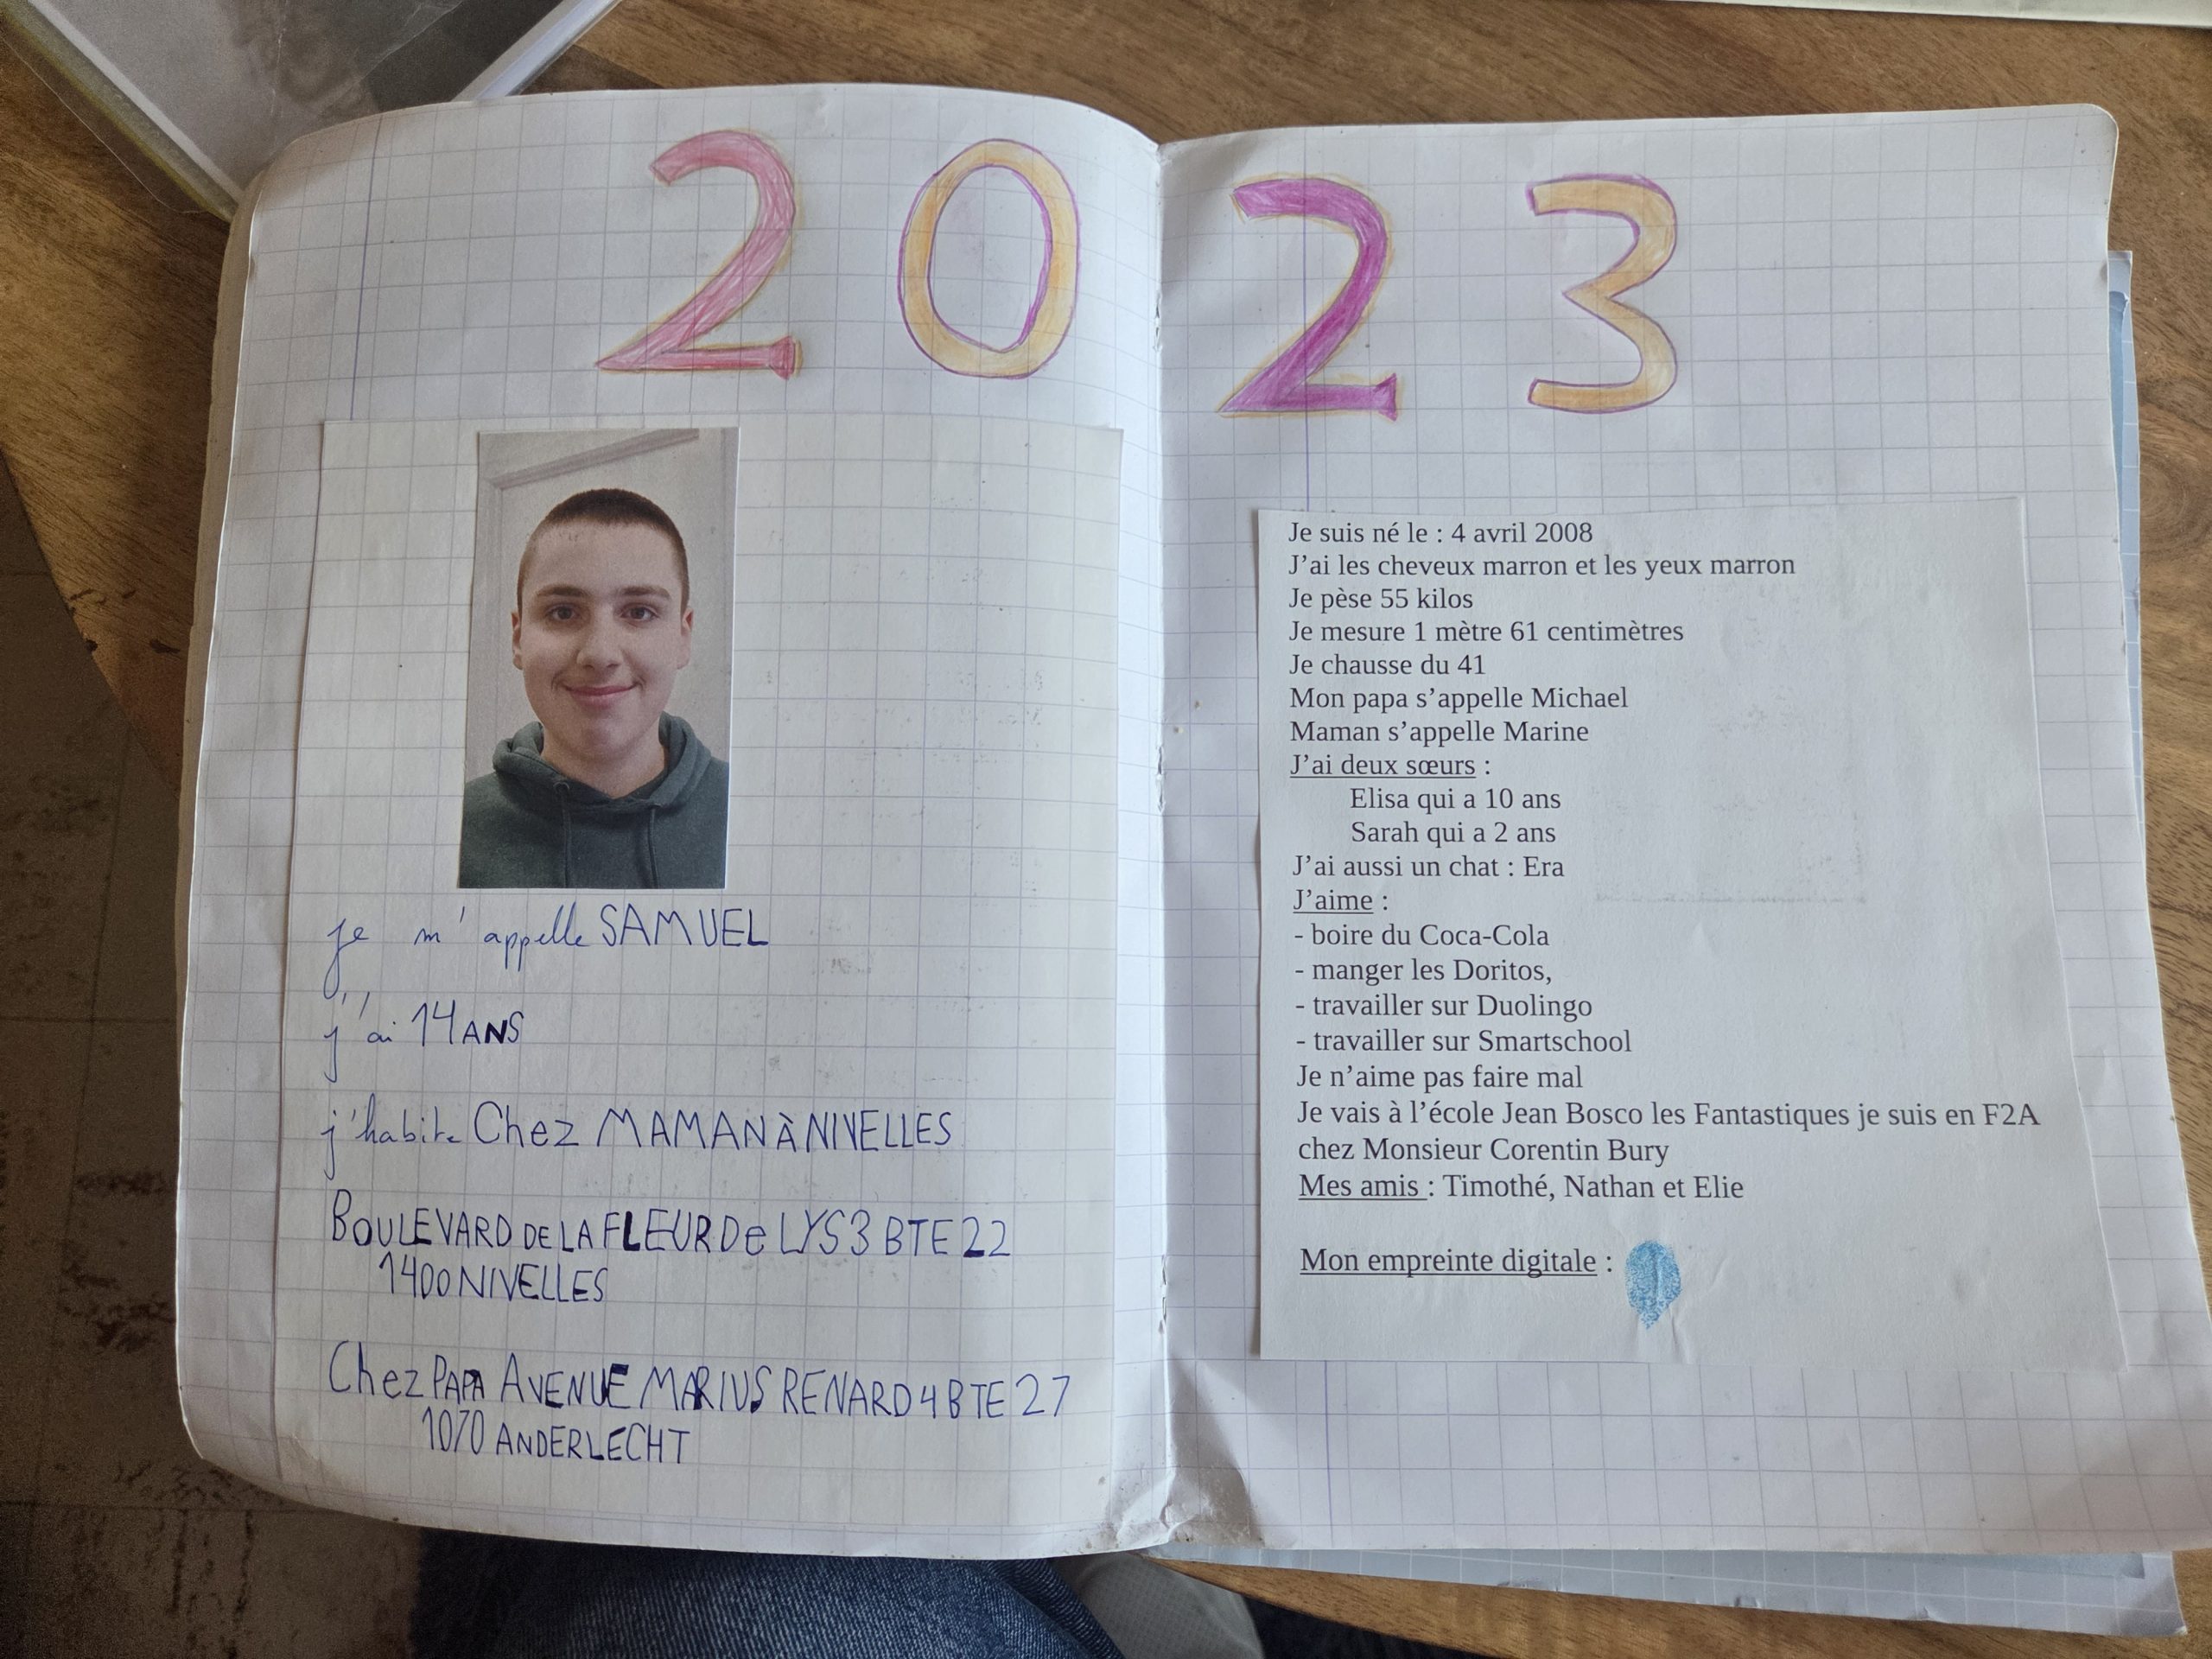 2023
je m'appelle SAMUEL
j'ai 14 ANS
j'habite Chez MAMAN À NIVELLES
BOULEVARD DE LA FLEUR De LYS 3 BTE 22
1400 NIVELLES
Chez PAPA AVENUE MARIUS RENARD 4 BTE 27
1070 ANDERLECHT
Je suis né le : 4 avril 2008
J'ai les cheveux marron et les yeux marron
Je pèse 55 kilos
Je mesure 1 mètre 61 centimètres
Je chausse du 41
Mon papa s'appelle Michael
Maman s'appelle Marine
J'ai deux sœurs :
Elisa qui a 10 ans
Sarah qui a 2 ans
J'ai aussi un chat : Era
J'aime :
- boire du Coca-Cola
- manger les Doritos,
- travailler sur Duolingo
- travailler sur Smartschool
Je n'aime pas faire mal
Je vais à l'école Jean Bosco les Fantastiques je suis en F2A
chez Monsieur Corentin Bury
Mes amis : Timothé, Nathan et Elie
Mon empreinte digitale :